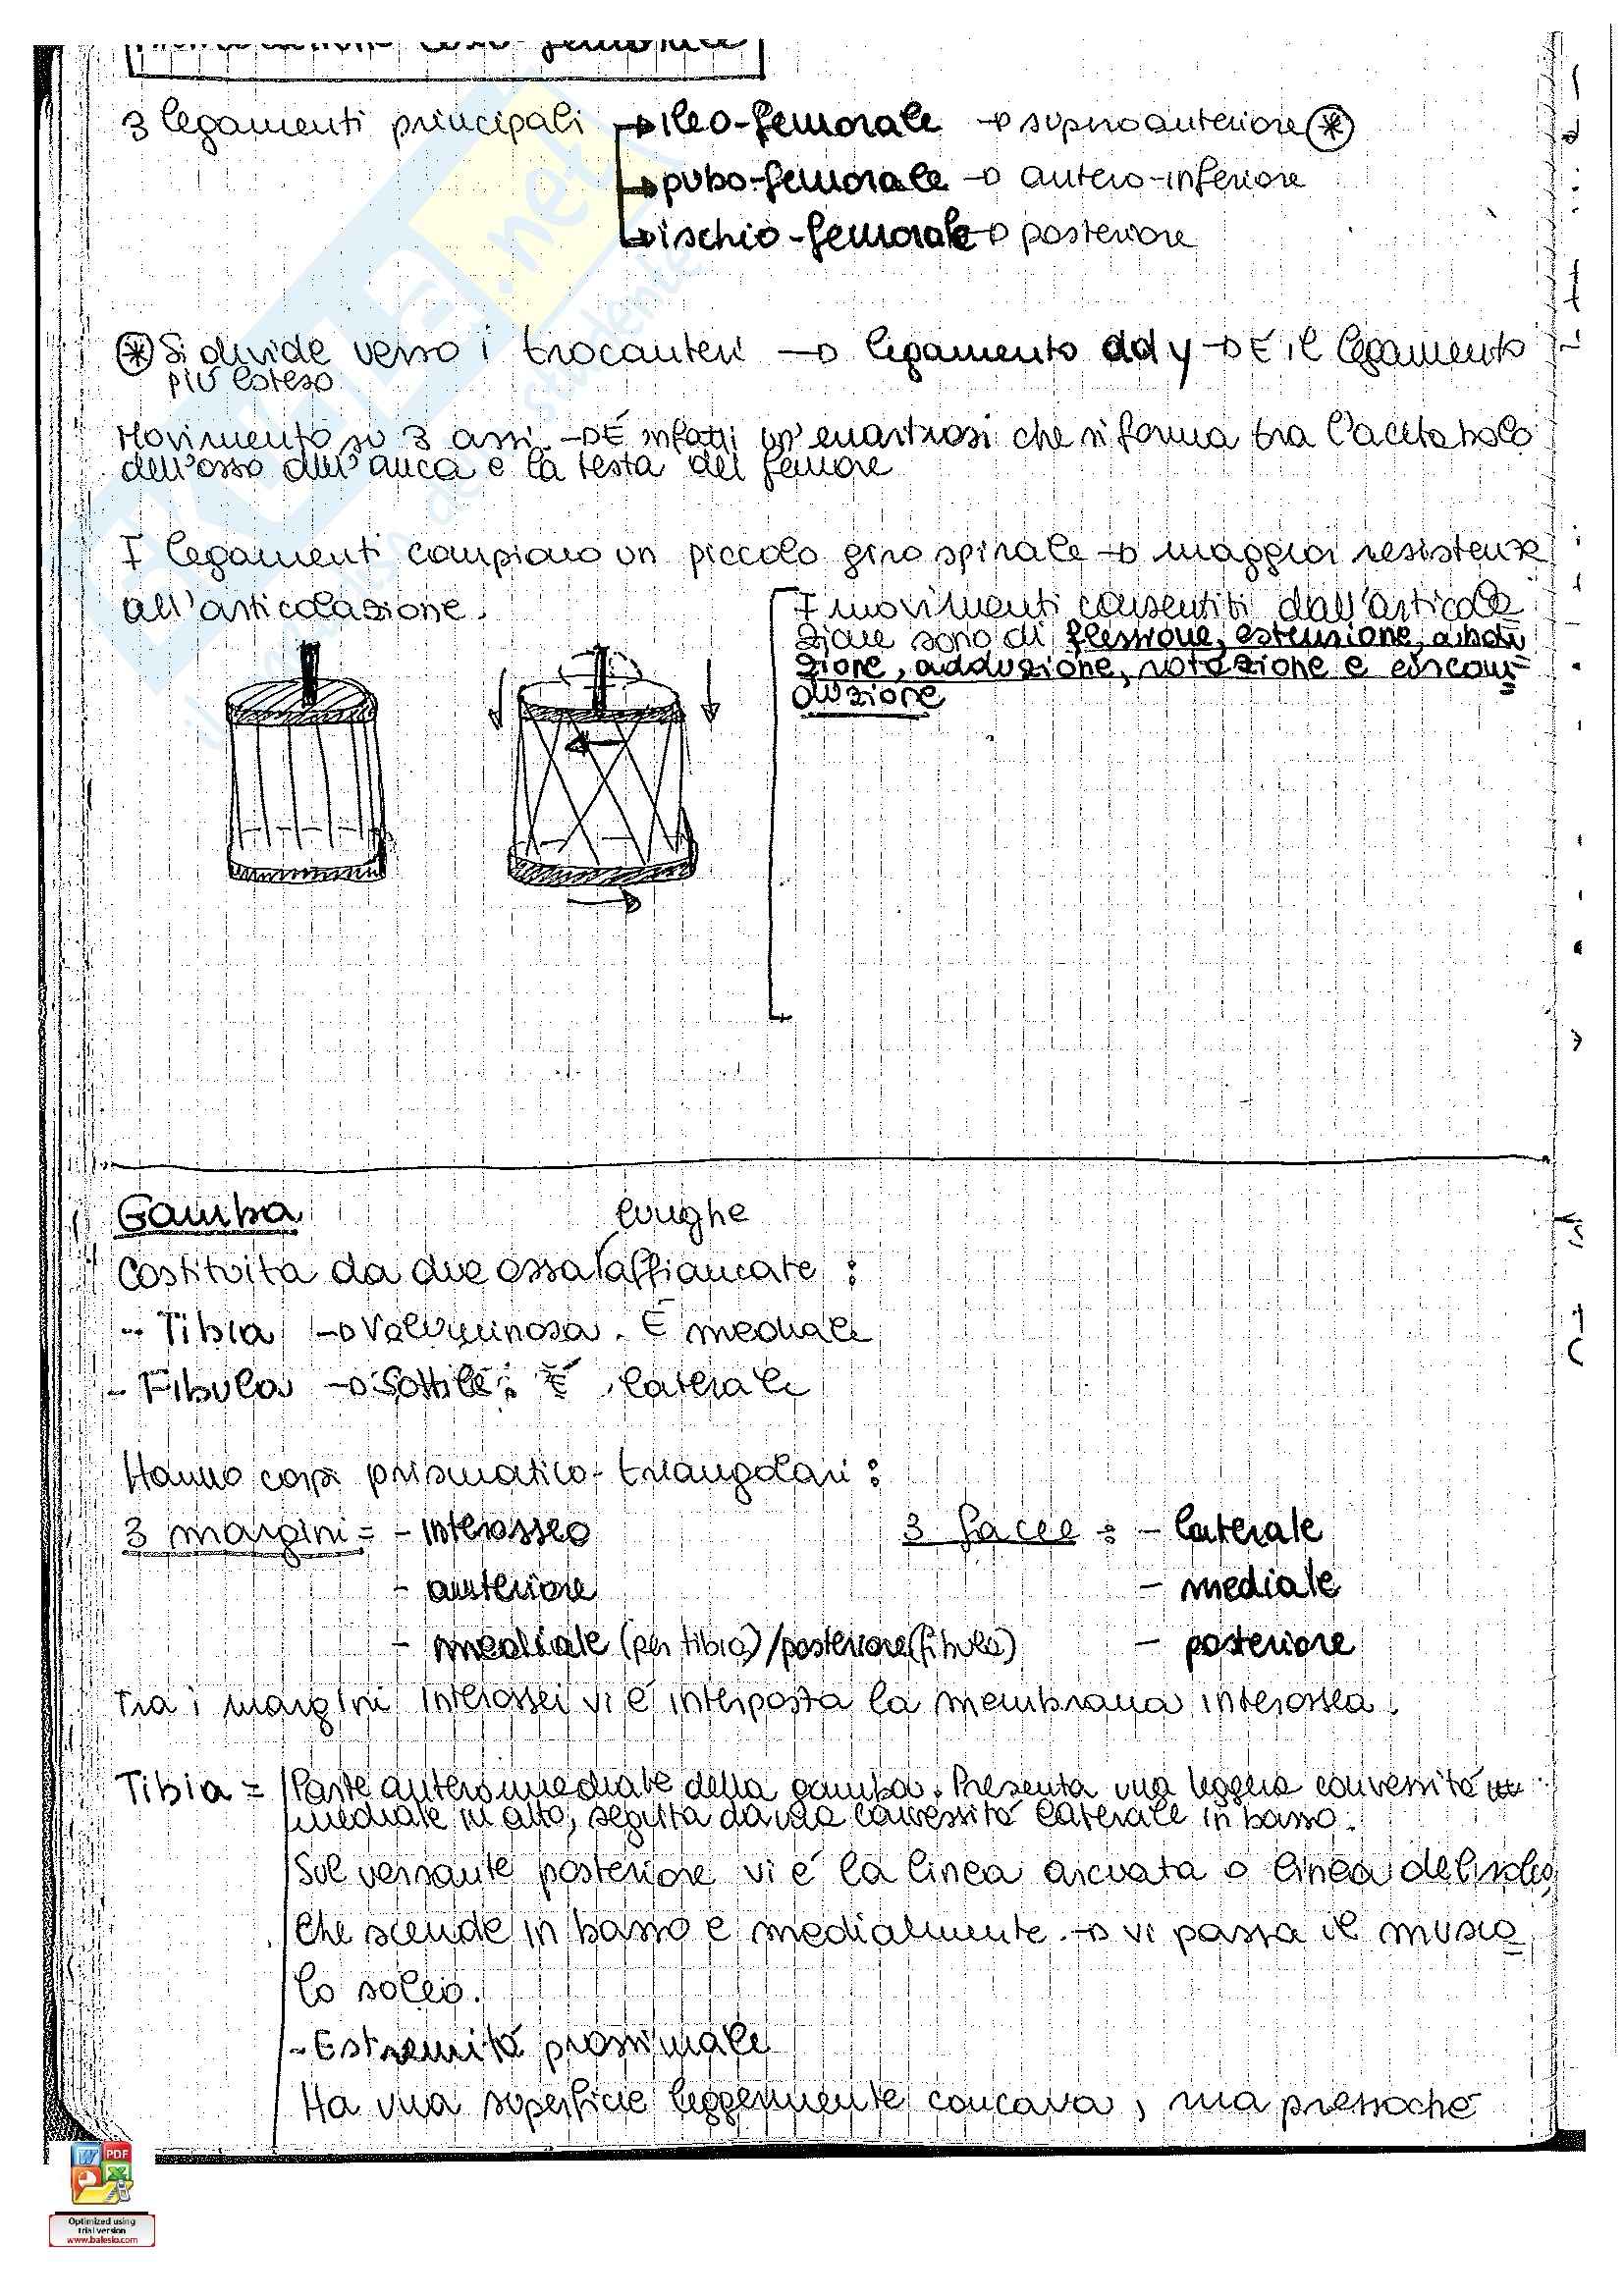 coxo-femorale
3 legamenti principali → ileo-femorale → supero anteriore (*)
→ pubo-femorale → antero-inferiore
→ ischio-femorale → posteriore
(*) Si divide verso i trocanteri → legamento ad y → È il legamento
più esteso
Movimento su 3 assi. → È infatti un'enartrosi che si forma tra l'acetabolo
dell'osso dell'anca e la testa del femore
I legamenti compiono un piccolo giro spirale → maggior resistenza
all'articolazione.
I movimenti consentiti dall'articola
zione sono di flessione, estensione, abdu
zione, adduzione, rotazione e circon=
duzione
Gamba
Costituita da due ossa lunghe affiancate :
- Tibia → Voluminosa. È mediale
- Fibula → Sottile. È laterale
Hanno corpi prismatico-triangolari :
3 margini = - interosseo
- anteriore
- mediale (per tibia) / posteriore (fibula)
3 facce : - laterale
- mediale
- posteriore
Tra i margini interossei vi è interposta la membrana interossea.
Tibia = Parte anteromediale della gamba. Presenta una leggera convessità
mediale in alto, seguita da una convessità laterale in basso.
Sul versante posteriore vi è la linea arcuata o linea del soleo,
che scende in basso e medialmente. → vi passa il musco=
lo soleo.
- Estremità prossimale
Ha una superficie leggermente concava, ma pressoché
Optimized using
trial version
www.balesio.com